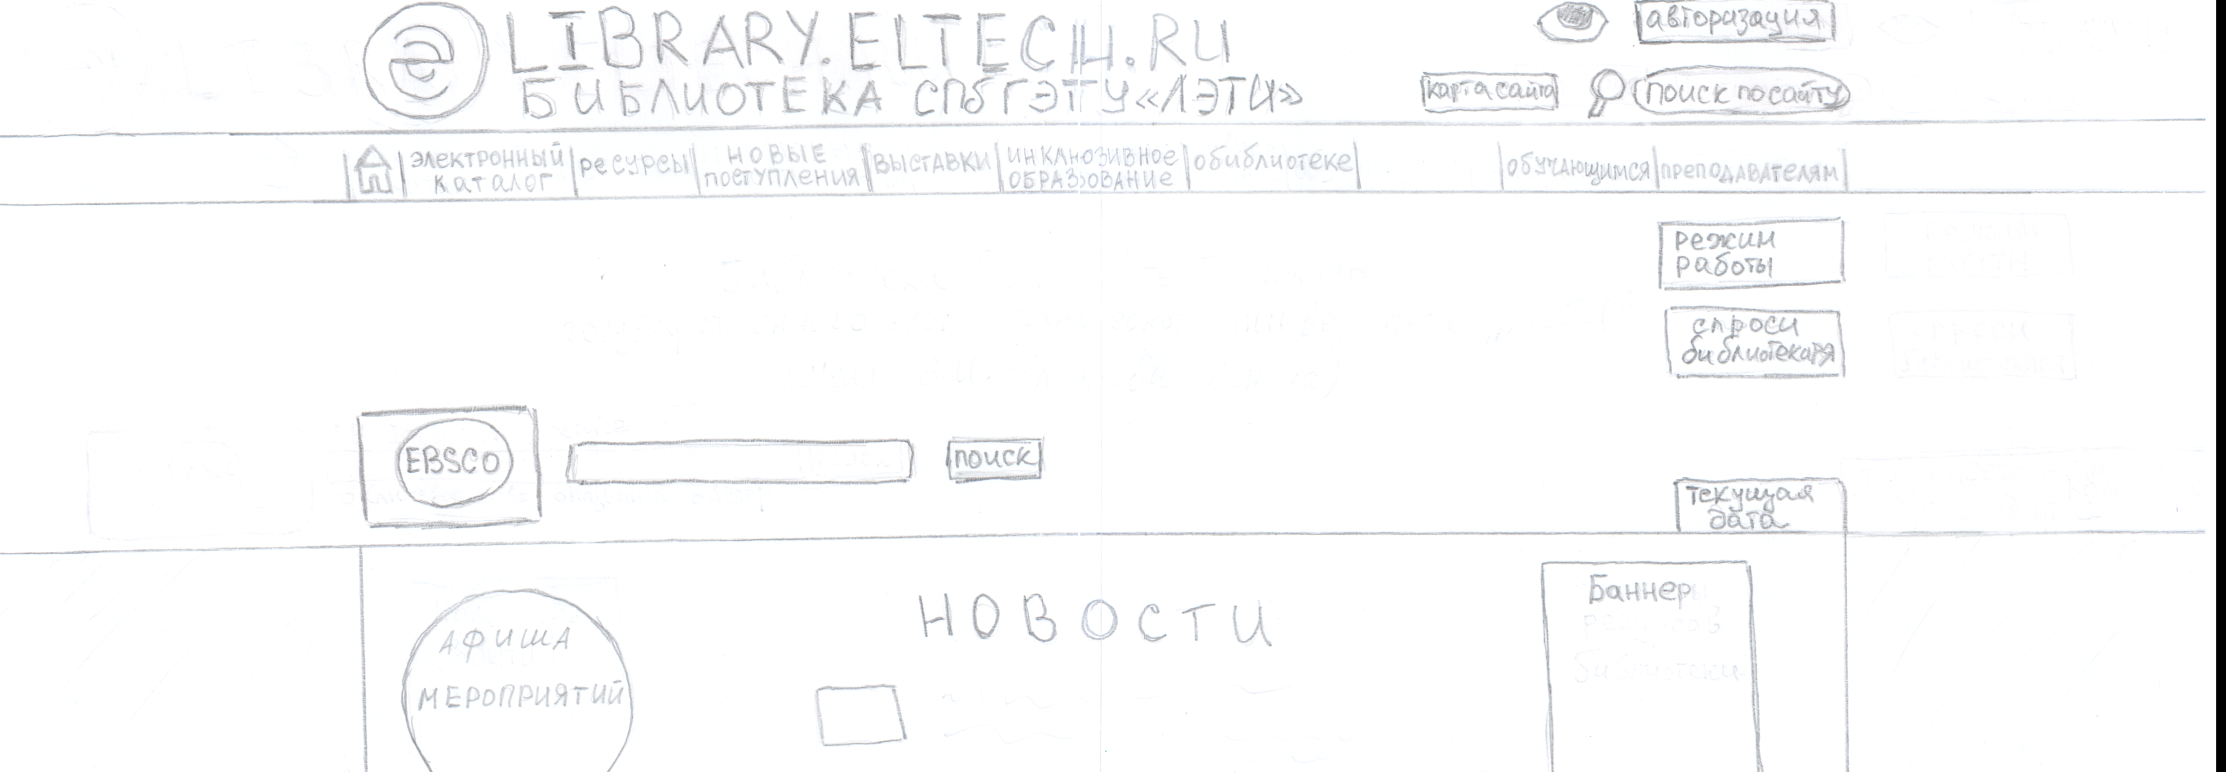 е LIBRARY.ELTECH.RU
БИБЛИОТЕКА СПбГЭТУ «ЛЭТИ»
авторазация
карта сайта
поиск по сайту
ЭЛЕКТРОННЫЙ
КАТАЛОГ
ресурсы
НОВЫЕ
ПОСТУПЛЕНИЯ
ВЫСТАВКИ
ИНКЛЮЗИВНОЕ
ОБРАЗОВАНИЕ
о библиотеке
обучающимся
преподавателям
режим
работы
спроси
библиотекаря
EBSCO
поиск
текущая
дата
АФИША
МЕРОПРИЯТИЙ
НОВОСТИ
Баннер